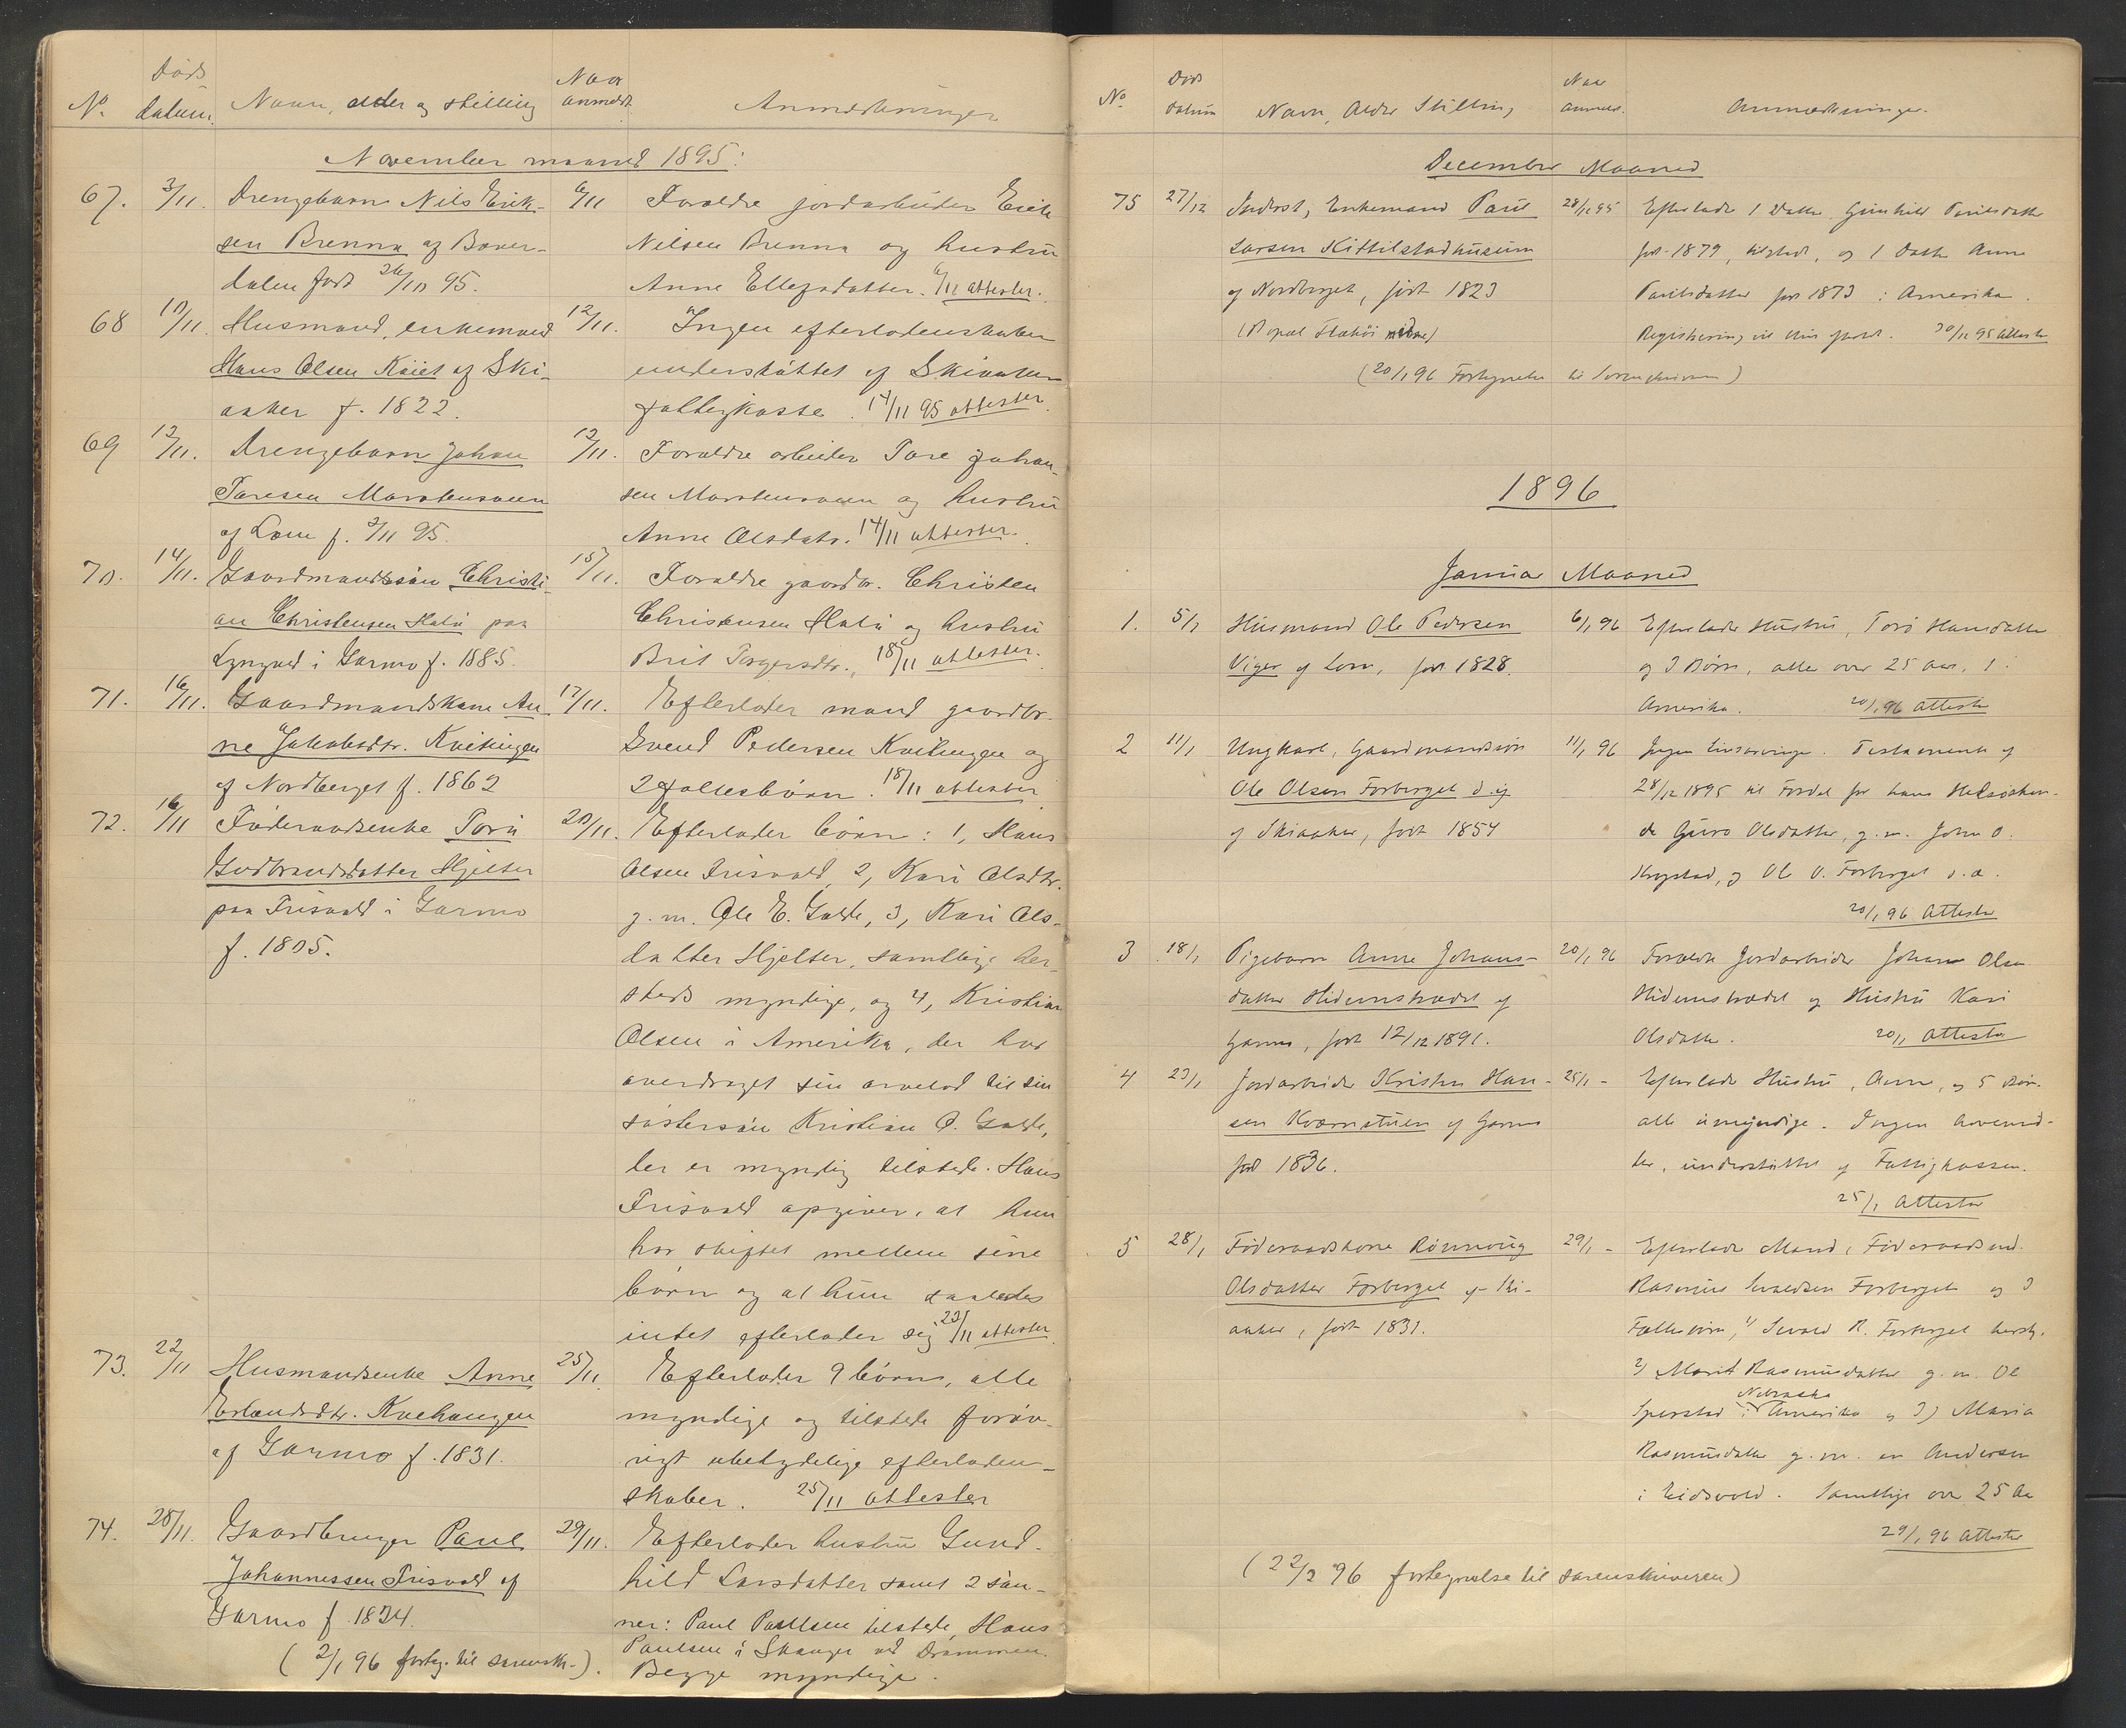 No. Døds datum. Navn, alder og stilling Naar anmeldt. Anmerkninger
November maaned 1895:
67. 3/11. Drengebarn Nils Erik- 6/11 Forældre jordarbeider Erik
sen Brenna af Bøver- Nilsen Brenna og hustru
dalen født 26/10 95. Anne Ellefsdatter. 6/11 attester.
68 10/11. Husmand, enkemand 12/11. Ingen efterladenskaber
Hans Olsen Kviet af Ski- understøttet af Skiaker
aaker f. 1822. fattigkasse. 14/11 95 attester.
69 12/11. Drengebarn Johan 12/11. Forældre arbeider Tore Johan-
Toresen Marstensveen sen Marstensveen og hustru
af Lom f. 2/11 95. Anne Olsdatr. 14/11 attester.
70. 14/11. Gaardmandssøn Christi- 15/11. Forældre gaardbr. Christen
an Christensen Hølu paa Christensen Hølu og hustru
Lyngved i Garmo f. 1885. Brit Torgersdtr., 18/11 attester.
71. 16/11. Gaardmandskone An- 17/11. Efterlader mand gaardbr.
ne Jakobsdtr. Kvitingen Svend Pedersen Kvitingen og
af Nordberget f. 1862 2 fællesbørn. 18/11 attester
72. 16/11 Føderaadsenke Torø 20/11. Efterlader børn: 1, Hans
Gudbrandsdatter Hjelter Olsen Frisvold, 2, Kari Olsdtr.
paa Frisvold i Garmo g. m. Ole E. Galde, 3, Kari Ols-
f. 1805. datter Hjelter, samtlige her-
steds myndige, og 4, Kristian
Olsen i Amerika, der har
overdraget sin arvelod til sin
søstersøn Kristian O. Galde,
der er myndig tilstede. Hans
Frisvold opgiver, at hun
har skiftet mellem sine
børn og at hun saaledes
intet efterlader sig. 23/11 attester
73. 22/11 Husmandsenke Anne 25/11. Efterlader 9 børn, alle
Erlandsdtr. Kvehaugen myndige og tilstede forøv-
af Garmo f. 1831. rigt ubetydelige efterladen-
skaber. 25/11 attester
74. 28/11. Gaardbruger Paul 29/11. Efterlader hustru Gund-
Johannessen Frisvold af hild Larsdatter samt 2 søn-
Garmo f. 1834. ner: Paul Paulsen tilstede, Hans
Paulsen i Skauger ved Drammen.
(2/1 96 forteg. til sorenskr.). Begge myndige.
No. Døds datum Navn, Alder Stilling Naar anmeld. Anmærkninger.
December Maaned
75 27/12 Inderst, Enkemand Paul 28/12 95 Efterlader 1 Datter Gunhild Paulsdatter
Larsen Kittilstadhusum født 1879, tilstede, og 1 Datter Anne
af Nordberget, født 1823 Paulsdatter født 1873 i Amerika.
(Bopæl Flækøi nedre) Registrering vil finde sted. 30/12 95 Attester
(20/1 96 Fortegnelse til Sorenskriveren)
1896
Januar Maaned
1. 5/1 Husmand Ole Pedersen 6/1 96 Efterlader Hustru, Torø Hansdatter
Viger af Lom, født 1828. og 3 Børn, alle over 25 aar, 1 i
Amerika. 20/1 96 Attester
2 11/1 Ungkarl, Gaardmandssøn 11/1 96 Ingen Livsarvinger. Testamente af
Ole Olsen Forberget d.y. 28/12 1895 til Fordel for hans Helsøsken-
af Skiaaker, født 1854 de Guro Olsdatter, g.m. John O.
Krogstad, og Ole O. Forberget d.æ.
20/1 96 Attester
3 18/1 Pigebarn Anne Johans- 20/1 96 Forældre Jordarbeider Johan Olsen
datter Hidemstrædet af Hidemstrædet og Hustru Kari
Garmo, født 12/12 1891. Olsdatter. 20/1 Attester
4 23/1 Jordarbeider Kristen Han- 25/1 - Efterlader Hustru, Anne, og 5 Børn
sen Kværnstuen af Garmo alle umyndige. Ingen Arvemid-
født 1836. ler, understøttet af Fattigkassen.
25/1 Attester
5 28/1 Føderaadskone Rønnoug 29/1 - Efterlader Mand, Føderaadsmd.
Olsdatter Forberget af Ski- Rasmus Sevaldsen Forberget og 3
aaker, født 1831. Fællesbørn, 1) Sevald R. Forberget herst.
2) Marit Rasmusdatter g. m. Ole
Nebraska
Sperstad i Amerika og 3) Maria
Rasmusdatter g. m. en Andersen
i Eidsvold. Samtlige over 25 Aar
29/1 96 Attester
(22/2 96 fortegnelse til sorenskriveren)